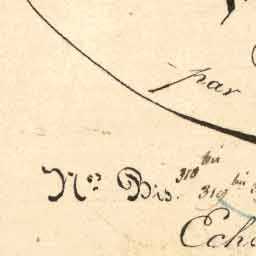 par
Nos Bis. 318 bis
319 bis
Ech